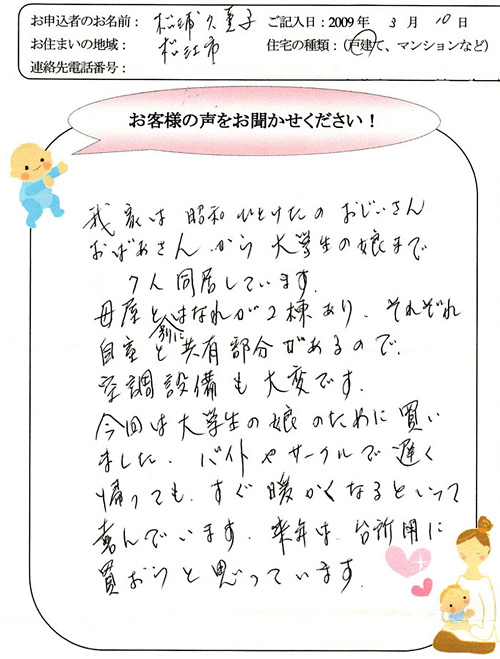 お申込者のお名前： 松浦久重子 ご記入日：2009年 3月 10日
お住まいの地域： 松江市 住宅の種類：（戸建て、マンションなど）
連絡先電話番号：
お客様の声をお聞かせください！
我家は昭和ひとけたのおじいさん
おばあさんから大学生の娘まで
7人同居しています。
母屋と別にはなれが2棟あり、それぞれ
自室と共有部分があるので、
空調設備も大変です。
今回は大学生の娘のために買い
ました。バイトやサークルで遅く
帰っても、すぐ暖かくなるといって
喜んでいます。来年は、台所用に
買おうと思っています。